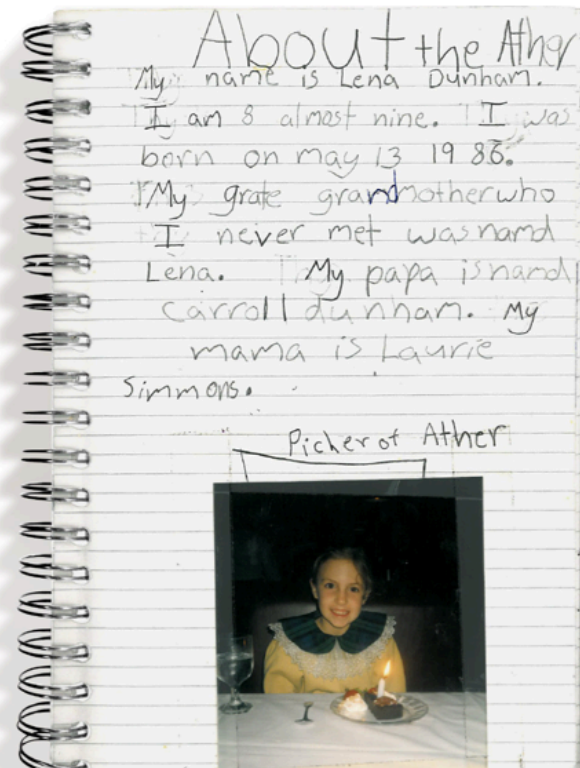 About the Ather
My name is Lena Dunham.
I am 8 almost nine. I was
born on may 13 1986.
My grate grandmother who
I never met was namd
Lena. My papa is namd
carroll dunham. My
mama is Laurie
Simmons.
Picher of Ather